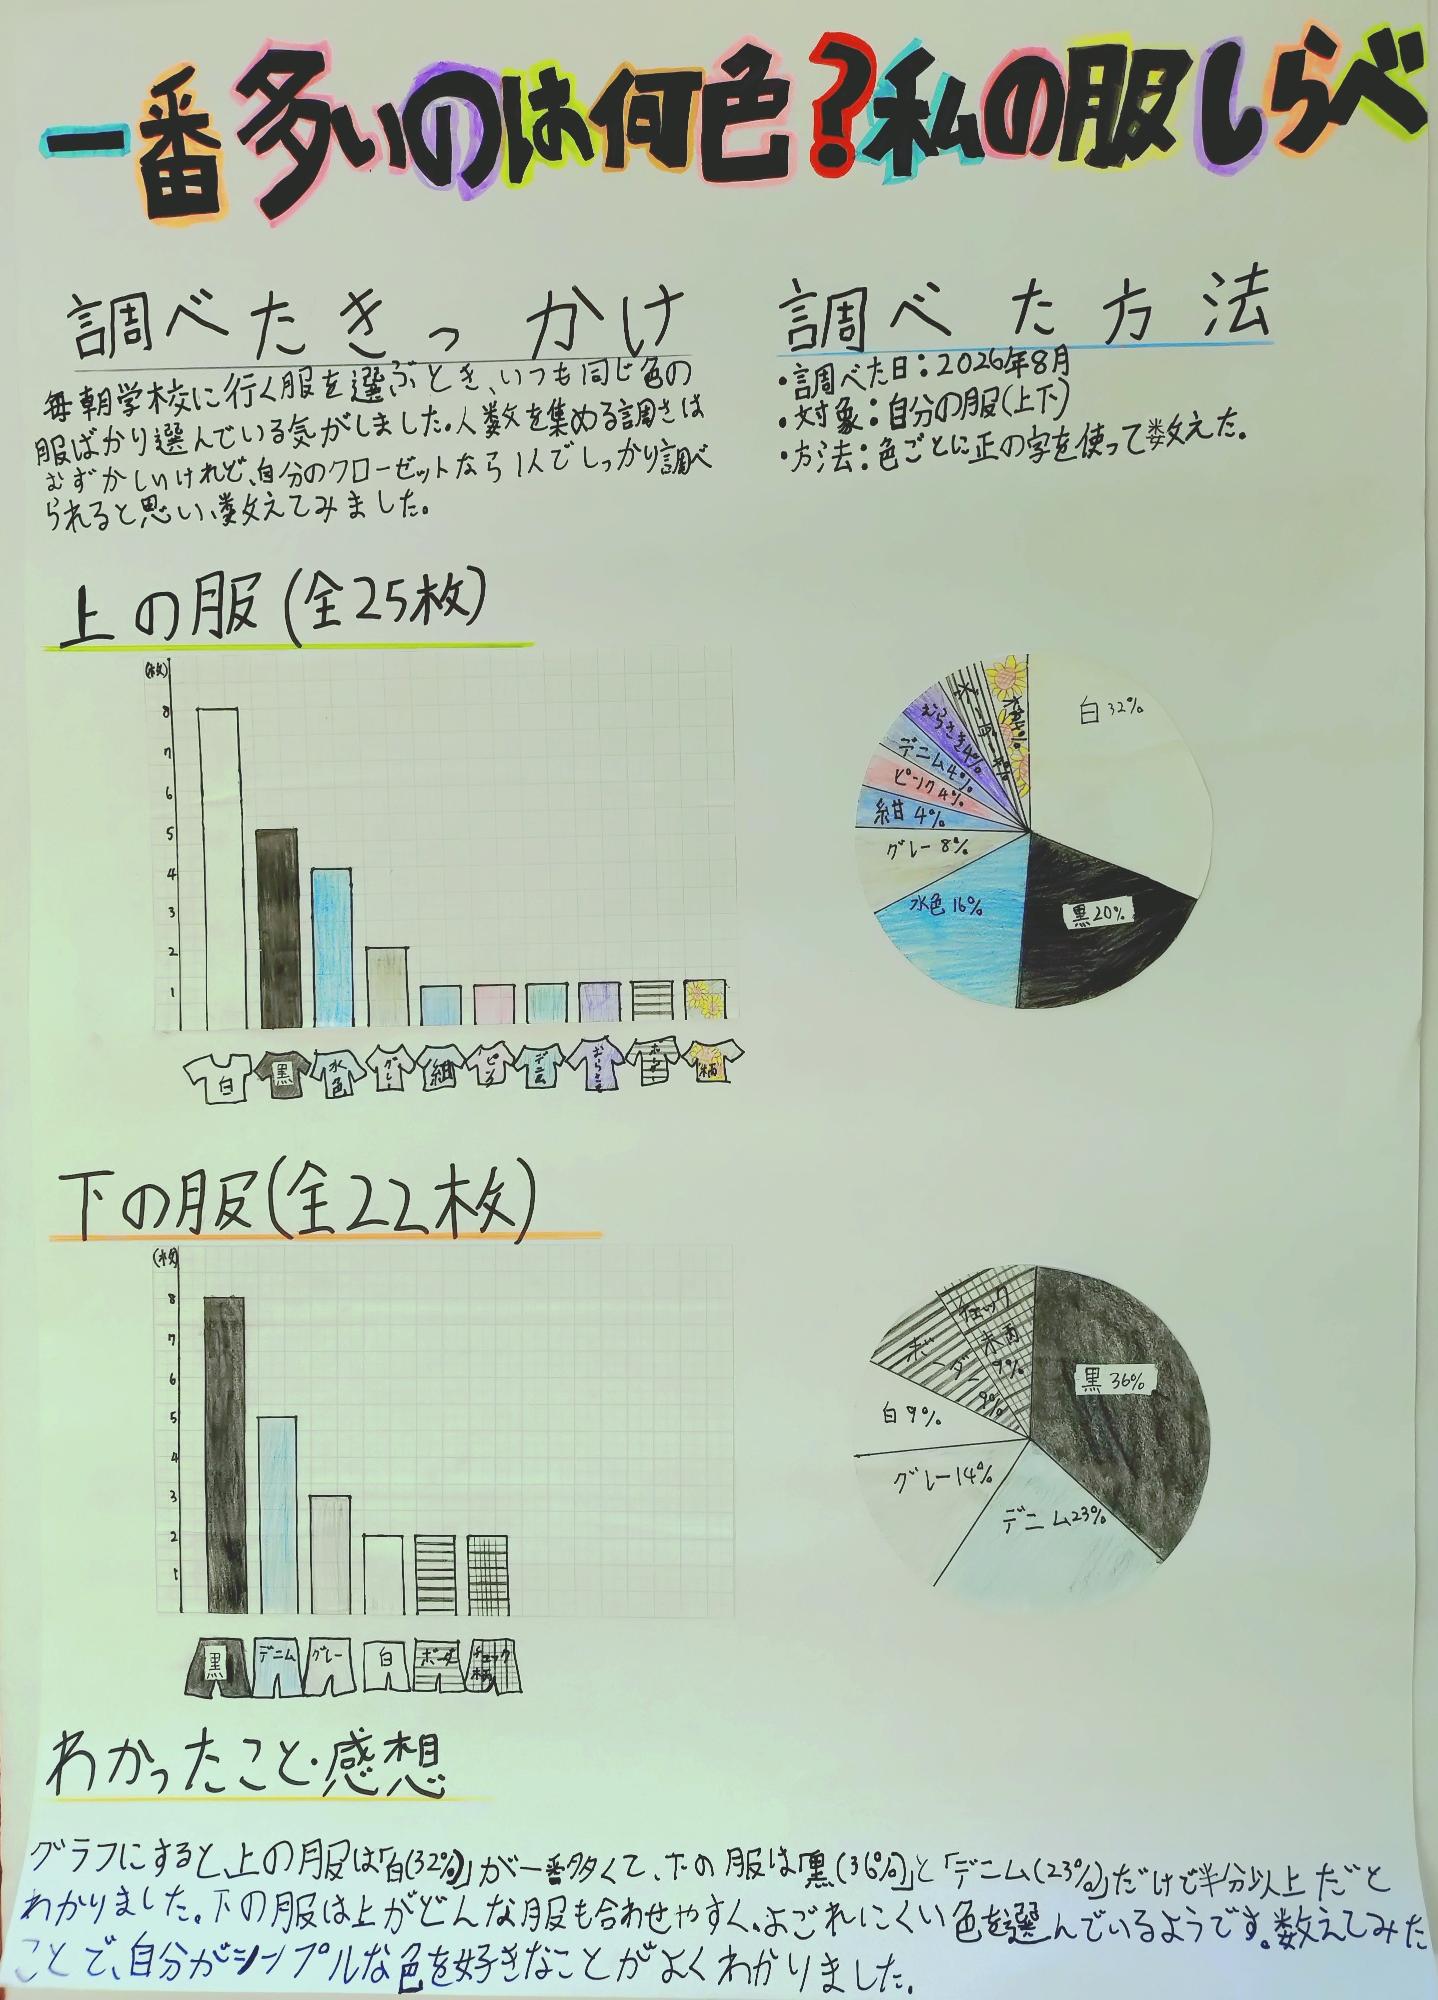 一番多いのは何色?私の服しらべ
調べたきっかけ
毎朝学校に行く服を選ぶとき、いつも同じ色の
服ばかり選んでいる気がしました。人数を集める調さは
むずかしいけれど、自分のクローゼットなら1人でしっかり調べ
られると思い、数えてみました。
調べた方法
・調べた日：2026年8月
・対象：自分の服(上下)
・方法：色ごとに正の字を使って数えた。
上の服(全25枚)
(枚)
8
7
6
5
4
3
2
1
白
黒
水色
グレー
紺
ピンク
デニム
むらさき
ボーダー
柄
白 32%
黒20%
水色 16%
グレー 8%
紺 4%
ピンク 4%
デニム 4%
むらさき 4%
ボーダー 4%
柄 4%
下の服(全22枚)
(枚)
8
7
6
5
4
3
2
1
黒
デニム
グレー
白
ボーダー
チェック柄
黒 36%
デニム23%
グレー14%
白 9%
ボーダー 9%
チェック柄 9%
わかったこと・感想
グラフにすると、上の服は「白(32%)」が一番多くて、下の服は「黒(36%)」と「デニム(23%)」だけで半分以上だと
わかりました。下の服は上がどんな服も合わせやすく、よごれにくい色を選んでいるようです。数えてみた
ことで、自分がシンプルな色を好きなことがよくわかりました。